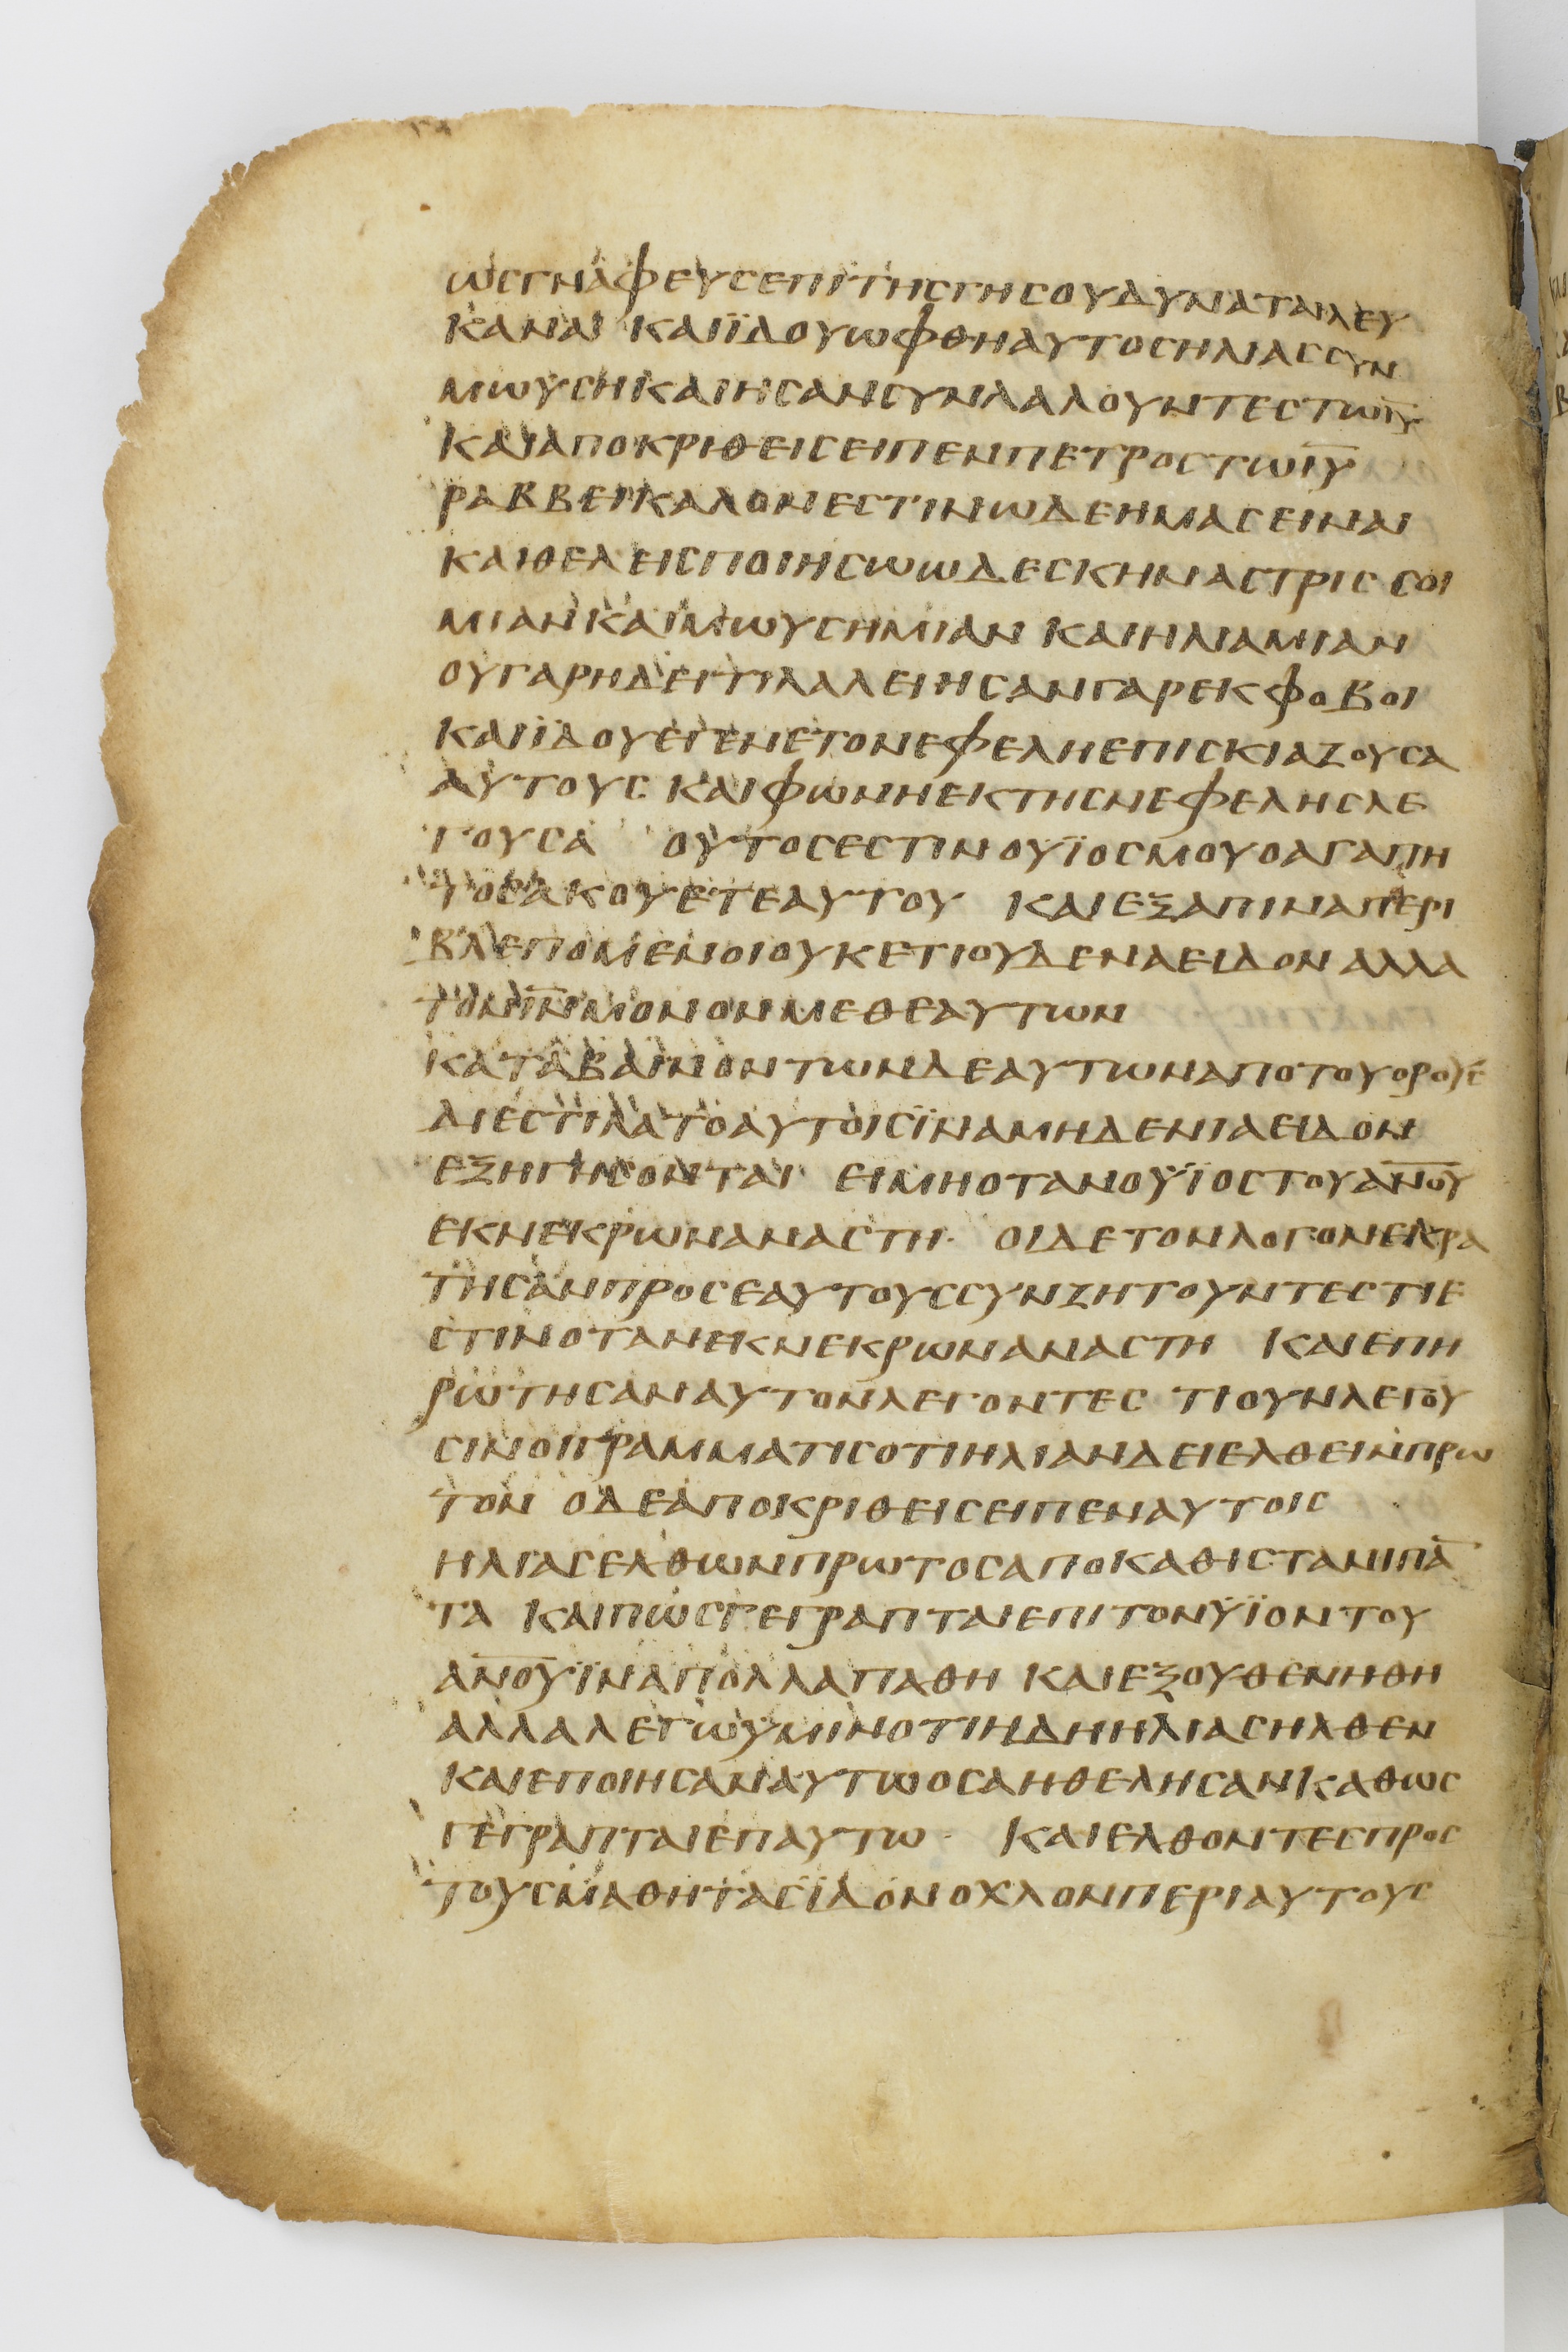 ωσγναφευσεπιτησγησουδυναταιλευ
καναι καιϊδουωφθηαυτοσηλιασσυν
μωυσηκαιησανσυνλαλουντεστωιυ
καιαποκριθεισειπενπετροστωιυ
ραββεικαλονεστινωδεημασειναι
καιθελεισποιησωωδεσκηναστρισ σοι
μιανκαιμωυσημιαν καιηλιαμιαν
ουγαρηδειτιλαλειησανγαρεκφοβοι
καιϊδουεγενετονεφεληεπισκιαζουσα
αυτουσ καιφωνηεκτησνεφελησλε
γουσα ουτοσεστινουϊοσμουοαγαπη
τοσακουετεαυτου καιεξαπιναπερι
βλεπομενοιουκετιουδεναειδοναλλα
τονινμονονμεθεαυτων
καταβαινοντωνδεαυτωναποτουορουσ
διεστιλατοαυτοισϊναμηδενιαειδον
εξηγησονται ειμηοτανουϊοστουανου
εκνεκρωναναστη· οιδετονλογονεκρα
τησανπροσεαυτουσσυνζητουντεστιε
στινοτανεκνεκρωναναστη καιεπη
ρωτησαναυτονλεγοντεσ τιουνλεγου
σινοιγραμματισοτιηλιανδειελθεινπρω
τον οδεαποκριθεισειπεναυτοισ
ηλιασελθωνπρωτοσαποκαθιστανιπα̅
τα καιπωσγεγραπταιεπιτονυϊοντου
ανουϊναπολλαπαθη καιεξουθενηθη
αλλαλεγωυμινοτιηδηηλιασηλθεν
καιεποιησαναυτωοσαηθελησανκαθωσ
γεγραπταιεπαυτω· καιελθοντεσπροσ
τουσμαθητασϊδονοχλονπεριαυτουσ